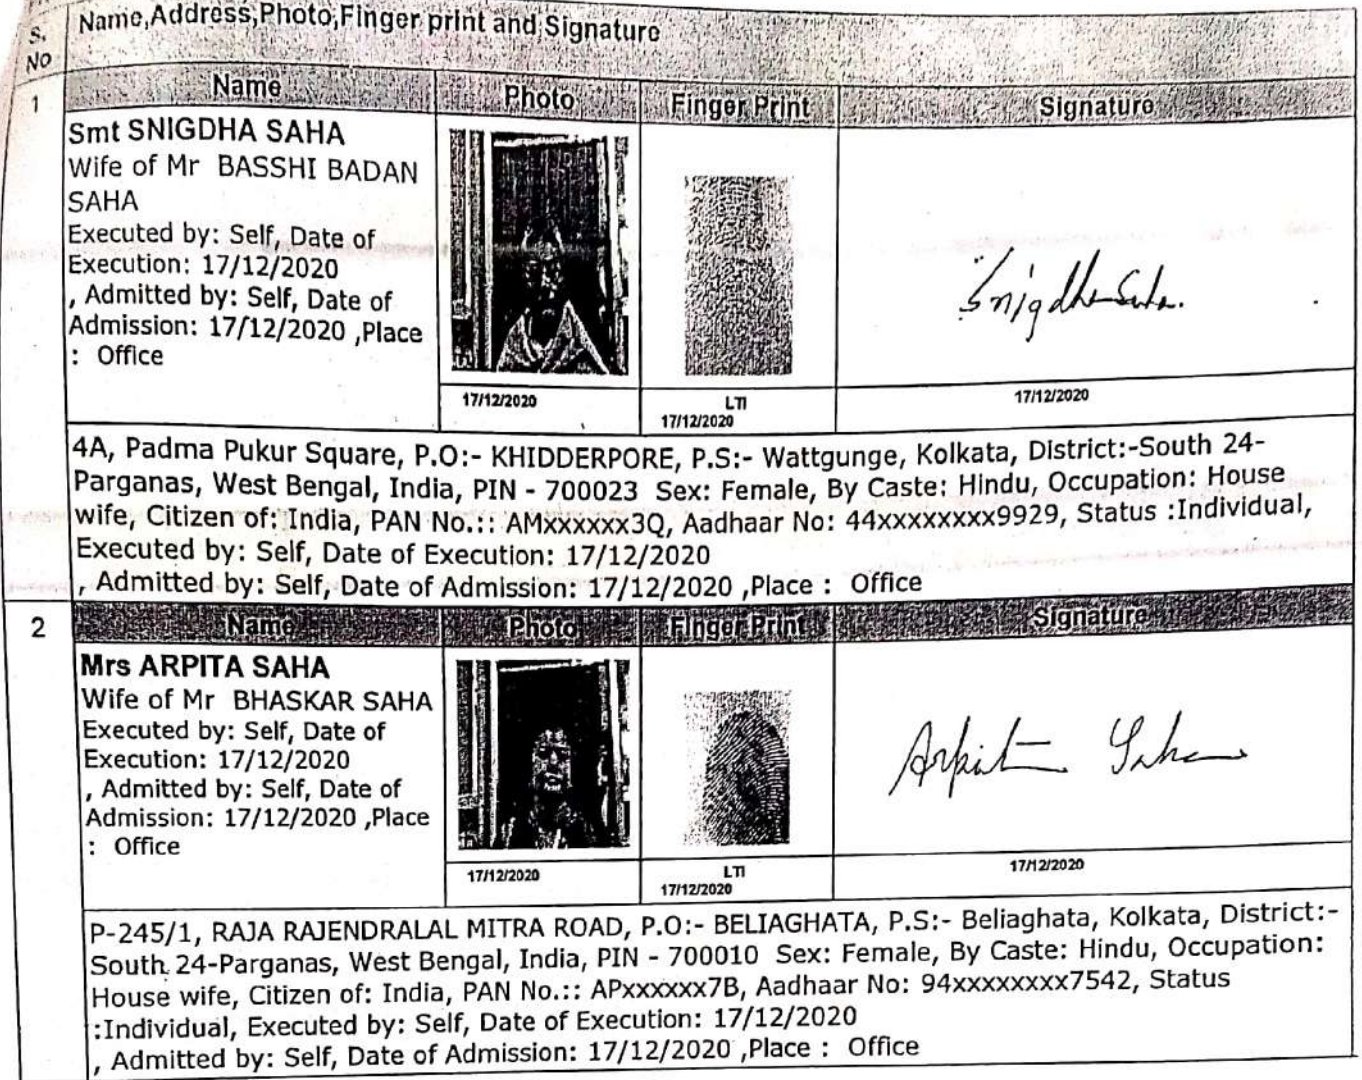 S. No
Name,Address,Photo,Finger print and Signature
1
Name
Photo
Finger Print
Signature
Smt SNIGDHA SAHA
Wife of Mr BASSHI BADAN
SAHA
Executed by: Self, Date of
Execution: 17/12/2020
, Admitted by: Self, Date of
Admission: 17/12/2020 ,Place
: Office
Snigdha Saha.
17/12/2020
LTI
17/12/2020
17/12/2020
4A, Padma Pukur Square, P.O:- KHIDDERPORE, P.S:- Wattgunge, Kolkata, District:-South 24-
Parganas, West Bengal, India, PIN - 700023 Sex: Female, By Caste: Hindu, Occupation: House
wife, Citizen of: India, PAN No.:: AMxxxxxx3Q, Aadhaar No: 44xxxxxxxx9929, Status :Individual,
Executed by: Self, Date of Execution: 17/12/2020
, Admitted by: Self, Date of Admission: 17/12/2020 ,Place : Office
2
Name
Photo
Finger Print
Signature
Mrs ARPITA SAHA
Wife of Mr BHASKAR SAHA
Executed by: Self, Date of
Execution: 17/12/2020
, Admitted by: Self, Date of
Admission: 17/12/2020 ,Place
: Office
Arpita Saha
17/12/2020
LTI
17/12/2020
17/12/2020
P-245/1, RAJA RAJENDRALAL MITRA ROAD, P.O:- BELIAGHATA, P.S:- Beliaghata, Kolkata, District:-
South 24-Parganas, West Bengal, India, PIN - 700010 Sex: Female, By Caste: Hindu, Occupation:
House wife, Citizen of: India, PAN No.:: APxxxxxx7B, Aadhaar No: 94xxxxxxxx7542, Status
:Individual, Executed by: Self, Date of Execution: 17/12/2020
, Admitted by: Self, Date of Admission: 17/12/2020 ,Place : Office